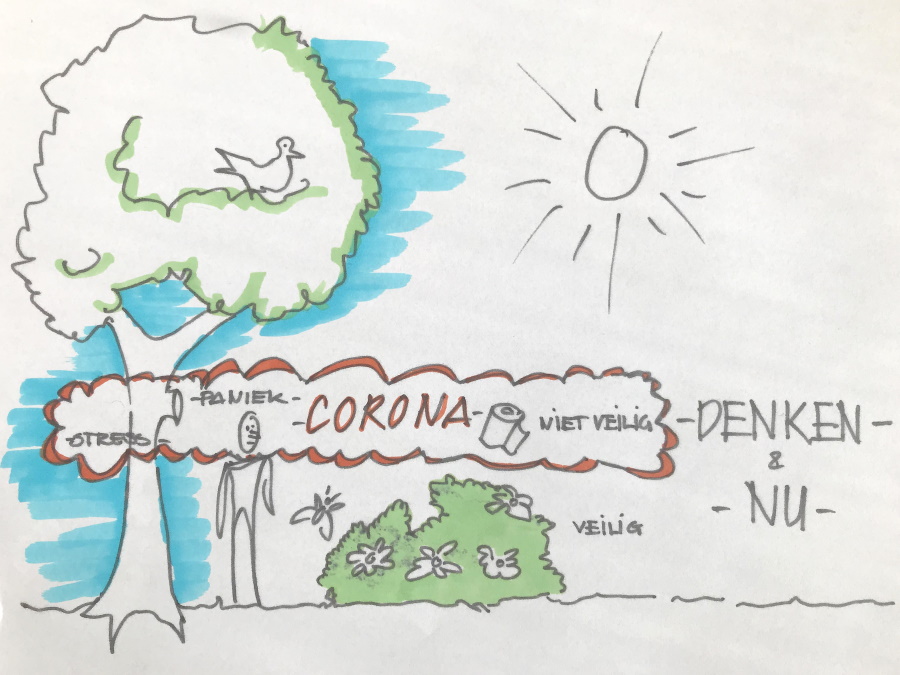 - PANIEK -
STRESS
- CORONA -
NIET VEILIG
- DENKEN -
&
- NU -
VEILIG